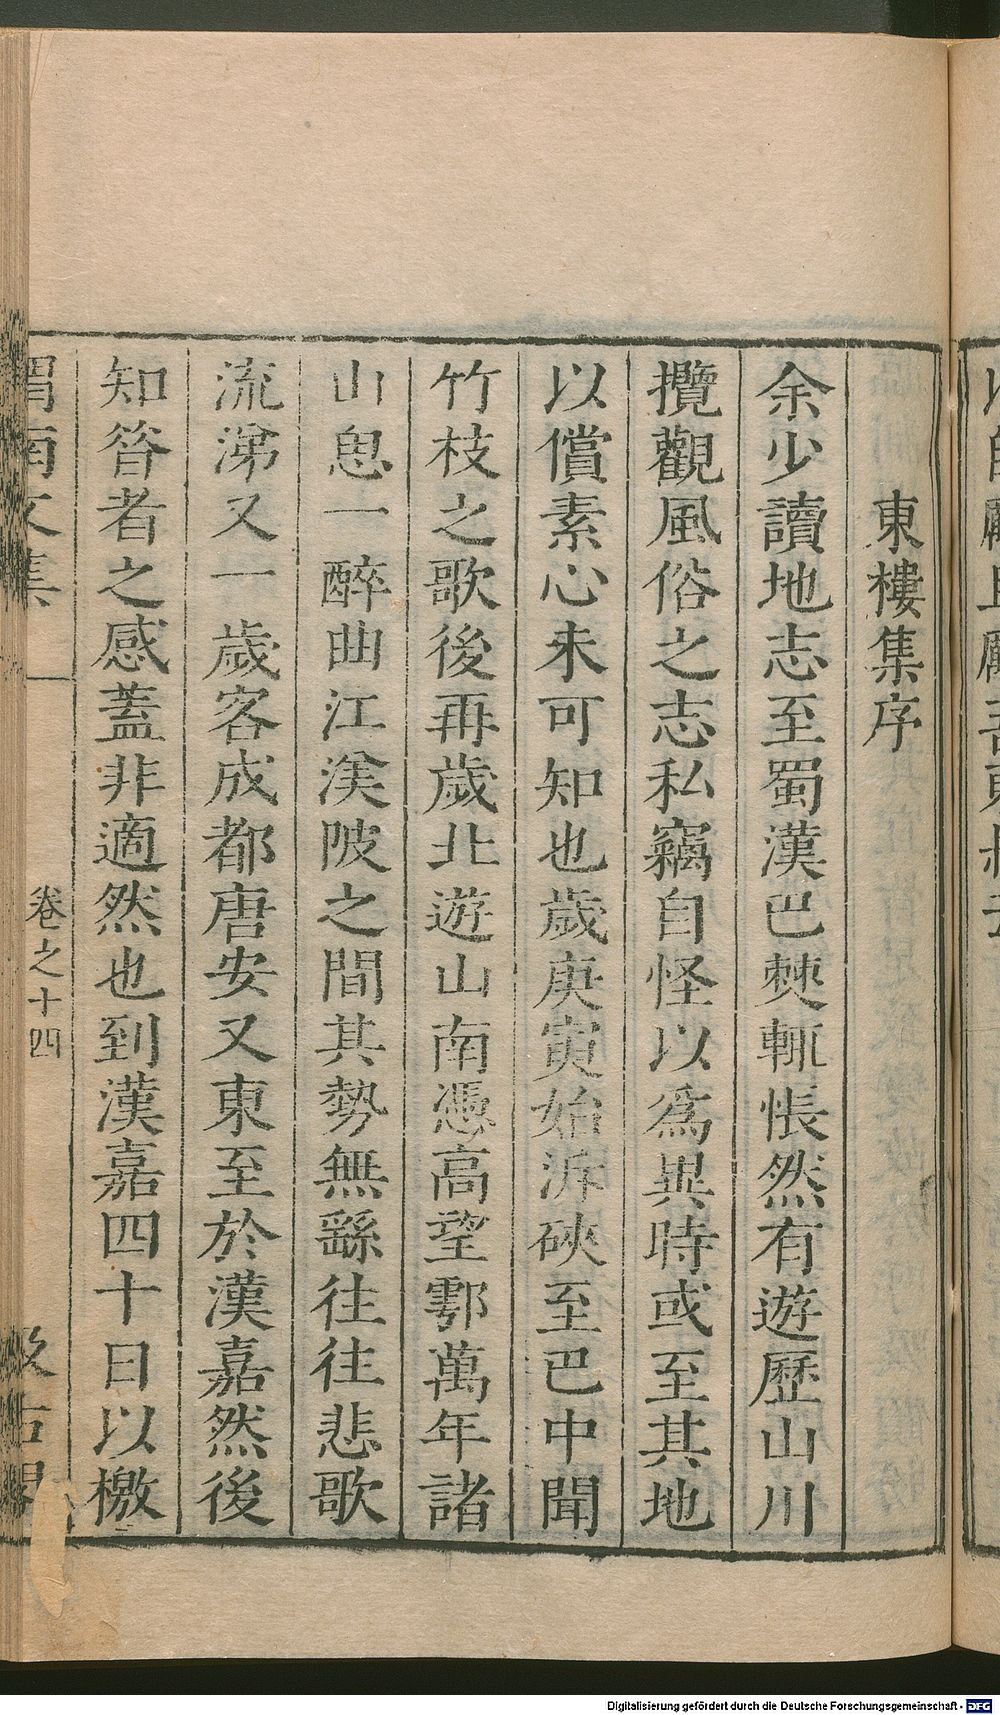 東樓集序
余少讀地志至蜀漢巴僰輒悵然有遊歷山川
攬觀風俗之志私竊自怪以爲異時或至其地
以償素心未可知也歲庚寅始泝硤至巴中聞
竹枝之歌後再歲北遊山南憑高望鄠萬年諸
山思一醉曲江渼陂之間其勢無繇往往悲歌
流涕又一歲客成都唐安又東至於漢嘉然後
知昝者之感蓋非適然也到漢嘉四十日以檄
渭南文集
卷之十四
汲古閣
Digitalisierung gefördert durch die Deutsche Forschungsgemeinschaft - DFG